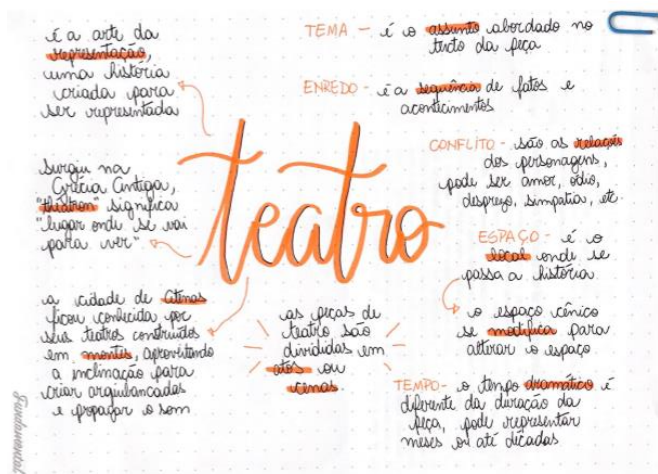 é a arte da
representação,
uma história
criada para
ser representada
surgiu na
Grécia Antiga,
"théatron" significa
"lugar onde se vai
para ver"
a cidade de Atenas
ficou conhecida por
seus teatros construídos
em montes, aproveitando
a inclinação para
criar arquibancadas
e propagar o som
teatro
as peças de
teatro são
divididas em
atos ou
cenas.
TEMA - é o assunto abordado no
texto da peça
ENREDO - é a sequência de fatos e
acontecimentos
CONFLITO - são as relações
dos personagens,
pode ser amor, ódio,
desprezo, simpatia, etc
ESPAÇO - é o
local onde se
passa a história
o espaço cênico
se modifica para
alterar o espaço
TEMPO - o tempo dramático é
diferente da duração da
peça, pode representar
meses ou até décadas
Fundamental